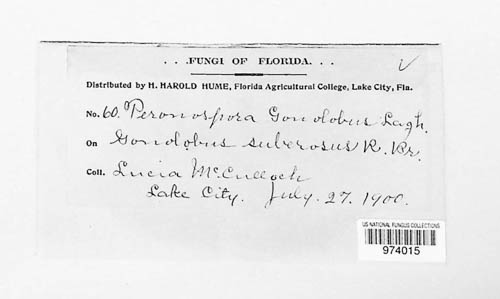 . . .FUNGI OF FLORIDA. . .
Distributed by H. HAROLD HUME, Florida Agricultural College, Lake City, Fla.
No. 60. Peronospora Gonolobus Lagh.
On Gonolobus suberosus R. Br.
Coll. Lucia McCulloch
Lake City. July. 27. 1900.
US NATIONAL FUNGUS COLLECTIONS
974015